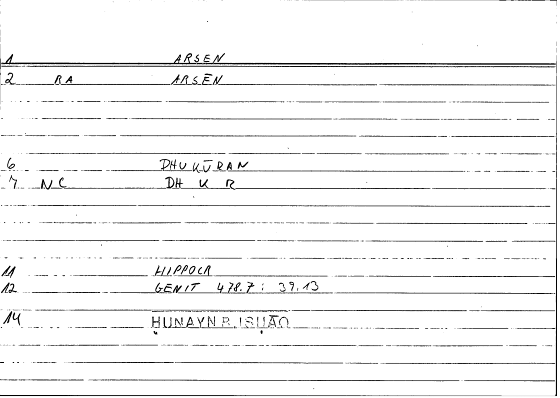 1 ARSEN
2 RA ARSĒN
6 DHUKŪRAN
7 NC DH K R
11 HIPPOCR
12 GENIT 478.7 : 39.13
14 ḤUNAYN B. ISḤĀQ